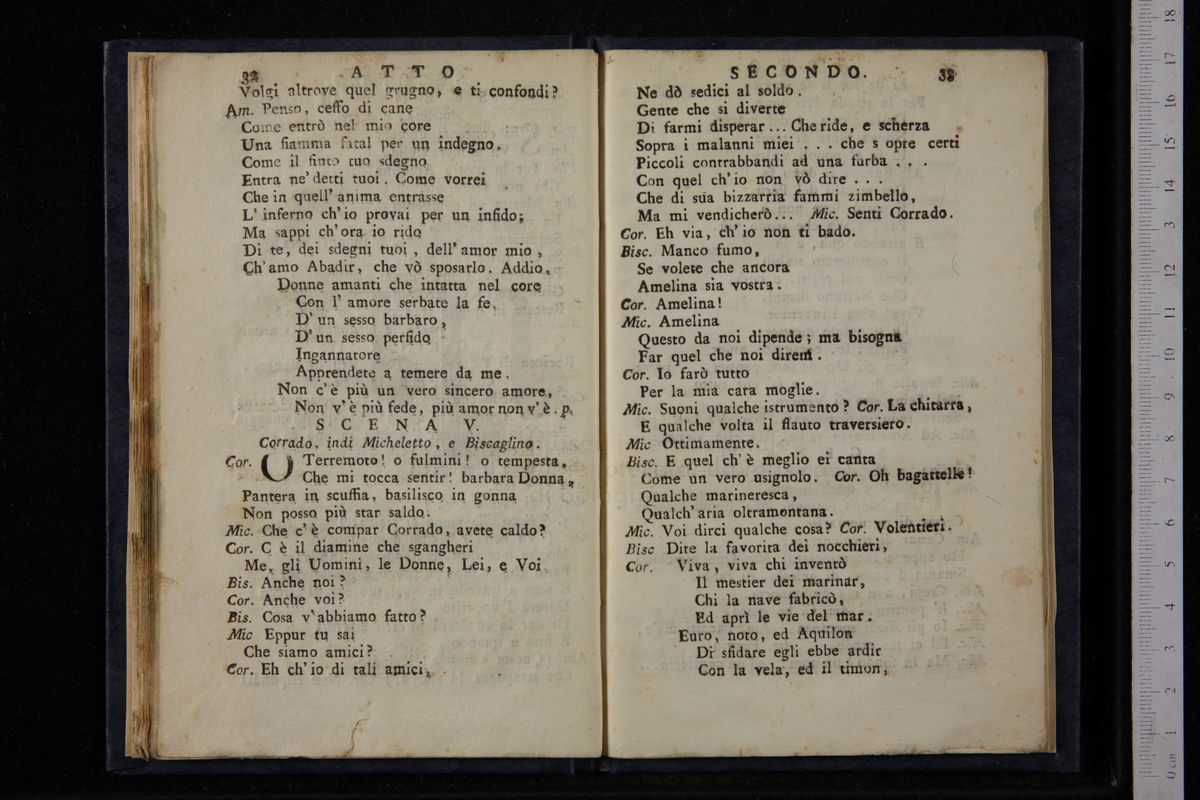 32 ATTO
Volgi altrove quel grugno, e ti confondi?
Am. Penso, ceffo di cane
Come entrò nel mio core
Una fiamma fatal per un indegno.
Come il finto tuo sdegno
Entra ne' detti tuoi. Come vorrei
Che in quell' anima entrasse
L' inferno ch' io provai per un infido;
Ma sappi ch' ora io rido
Di te, dei sdegni tuoi, dell' amor mio,
Ch' amo Abadir, che vò sposarlo. Addio.
Donne amanti che intatta nel core
Con l' amore serbate la fe,
D' un sesso barbaro,
D' un sesso perfido
Ingannatore
Apprendete a temere da me.
Non c' è più un vero sincero amore,
Non v' è più fede, più amor non v' è. p.
SCENA V.
Corrado, indi Micheletto, e Biscaglino.
Cor. O Terremoto! o fulmini! o tempesta,
Che mi tocca sentir! barbara Donna,
Pantera in scuffia, basilisco in gonna
Non posso più star saldo.
Mic. Che c' è compar Corrado, avete caldo?
Cor. C è il diamine che sgangheri
Me, gli Uomini, le Donne, Lei, e Voi.
Bis. Anche noi?
Cor. Anche voi?
Bis. Cosa v' abbiamo fatto?
Mic Eppur tu sai
Che siamo amici?
Cor. Eh ch' io di tali amici,
SECONDO. 33
Ne dò sedici al soldo.
Gente che si diverte
Di farmi disperar... Che ride, e scherza
Sopra i malanni miei . . . che s opre certi
Piccoli contrabbandi ad una furba . . .
Con quel ch' io non vò dire . . .
Che di sua bizzarria fammi zimbello,
Ma mi vendicherò... Mic. Senti Corrado.
Cor. Eh via, ch' io non ti bado.
Bisc. Manco fumo,
Se volete che ancora
Amelina sia vostra.
Cor. Amelina!
Mic. Amelina
Questo da noi dipende; ma bisogna
Far quel che noi direm.
Cor. Io farò tutto
Per la mia cara moglie.
Mic. Suoni qualche istrumento? Cor. La chitarra,
E qualche volta il flauto traversiero.
Mic Ottimamente.
Bisc. E quel ch' è meglio ei canta
Come un vero usignolo. Cor. Oh bagattelle!
Qualche marineresca,
Qualch' aria oltramontana.
Mic. Voi dirci qualche cosa? Cor. Volentieri.
Bisc Dite la favorita dei nocchieri,
Cor. Viva, viva chi inventò
Il mestier dei marinar,
Chi la nave fabricò,
Ed aprì le vie del mar.
Euro, noto, ed Aquilon
Di sfidare egli ebbe ardir
Con la vela, ed il timon,
0 cm 1 2 3 4 5 6 7 8 9 10 11 12 13 14 15 16 17 18